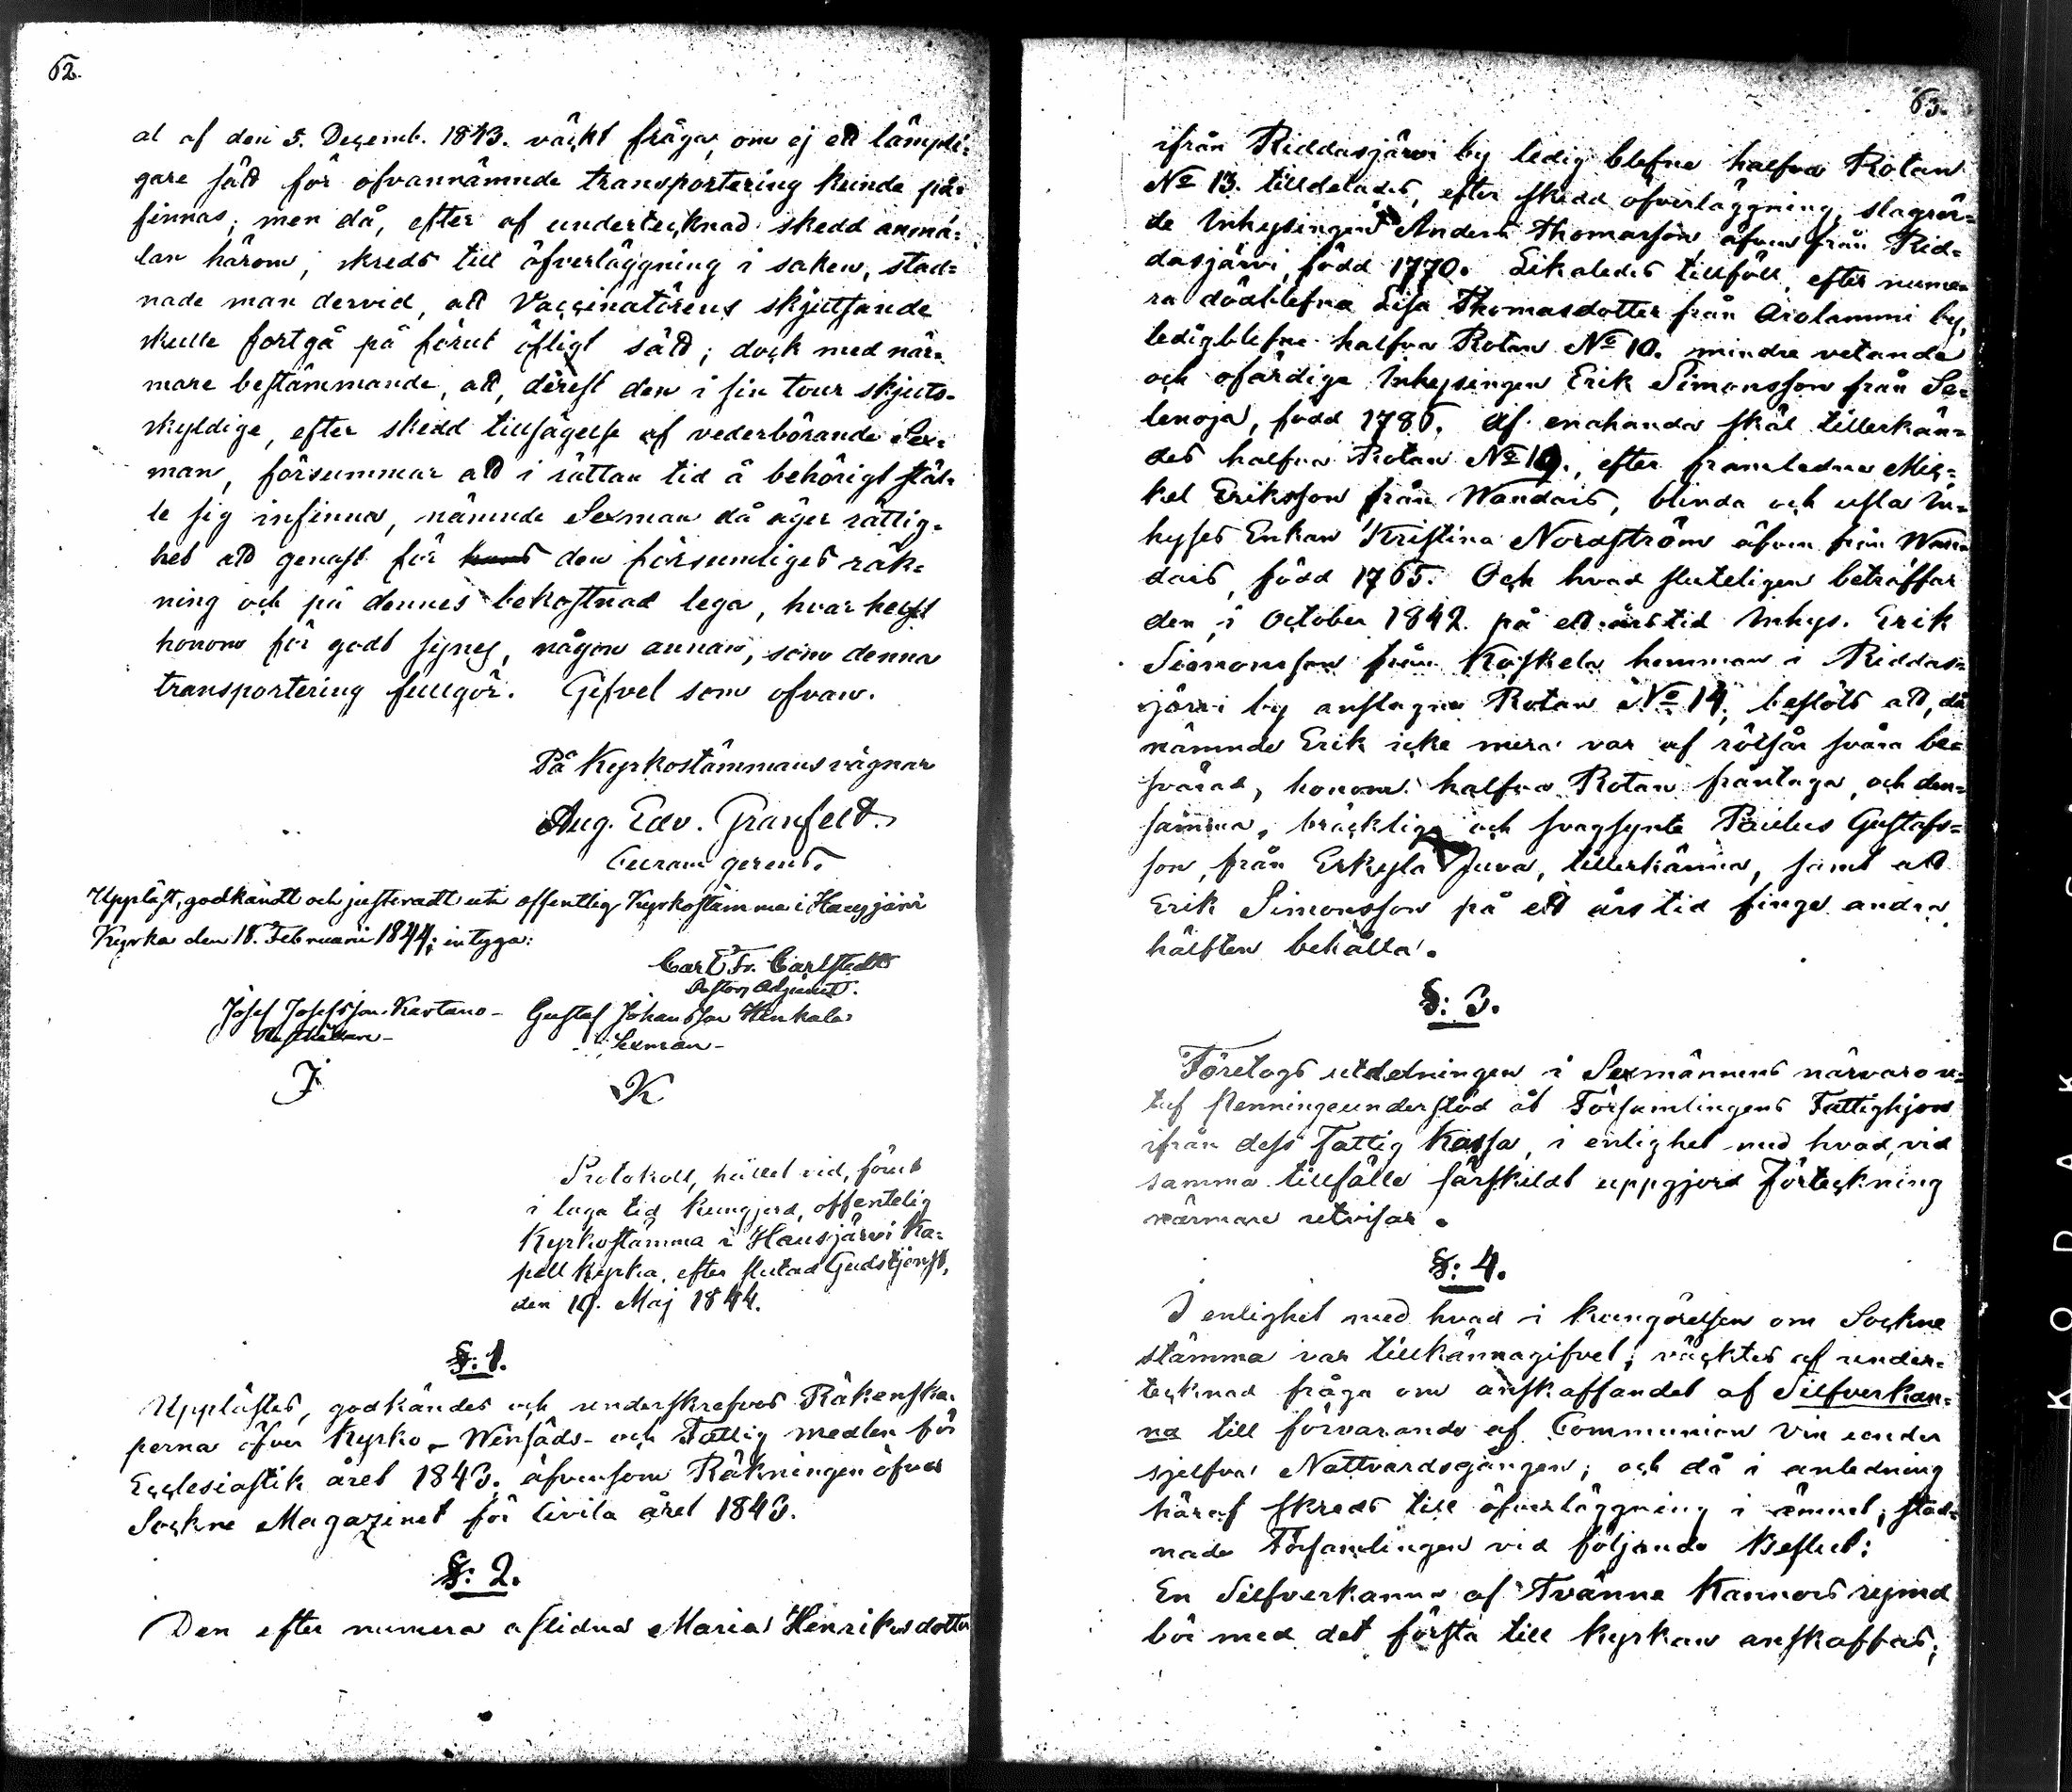 62.
at af den 5. Decemb. 1843. väckt fråga, om ej ett lämpli=
gare sätt för ofvannämnde transportering kunde på=
finnas; men då, efter af undertecknad skedd anmä=
lan härom, skreds till öfverläggning i saken, stad=
nade man dervid, att Vaccinatörens skjutsande
skulle fortgå på förut öfligt sätt; dock med när=
mare bestämmande, att, derest den i sin tour skjuts=
skyldige, efter skedd tillsägelse af vederbörande Sex=
man, försummar att i rättan tid å behörigt stäl=
le sig infinna, nämnde Sexman då äger rättig=
het att genast för hans den försumliges räk=
ning och på dennes bekostnad lega, hvar helst
honom för godt synes, någon annan, som denna
transportering fullgör. Gifvet som ofvan.
På Kyrkostämmans vägnar
Aug. Edv. Granfelt.
Curam gerens.
Uppläst, godkändt och justeradt uti offentlig Kyrkostämma i Hausjärvi
Kyrka den 18. Februarii 1844; intyga:
Carl Fr. Carlstedt
Pastors Adjunct.
Josef Josefsson Kartano - Gustaf Johansson Hinkala
Rusthållare - Sexman -
J K
Protokoll, hållet vid, förut
i laga tid kungjord, offentelig
Kyrkostämma i Hausjärvi Ka=
pell kyrka, efter slutad Gudstjenst,
den 19. Maj 1844.
§: 1.
Upplästes, godkändes och underskrefvos Räkenska=
perna öfver Kyrko- Winsäds- och Fattig medlen för
Ecclesiastik året 1843. äfvensom Räkningen öfver
Sockne Magazinet för Civila året 1843.
§: 2.
Den efter numera aflidna Maria Henriksdotter
63.
ifrån Riddasjärvi by ledig blefne halfva Rotan
No 13. tilldelades, efter skedd öfverläggning, slagrör=
de Inhysingen Anders Thomasson äfven från Rid=
dasjärvi, född 1770. Likaledes tillföll, efter nume=
ra dödblefna Lisa Thomasdotter från Arolammi by,
ledigblefne halfva Rotan No 10. mindre vetande
och ofärdige Inhysingen Erik Simonsson från Se=
lenoja, född 1786. Af enahanda skäl tillerkän=
des halfva Rotan No 19., efter framledne Mic=
kel Eriksson från Wandais, blinda och usla In=
hyses Enkan Kristina Nordström äfven från Wan=
dais, född 1765. Och hvad sluteligen beträffar
den, i October 1842. på ett års tid Inhys. Erik
Simonsson från Koskela hemman i Riddas=
järvi by anslagne Rotan No 14, beslöts att, då
nämnde Erik icke mera var af rötsår svåra be=
svärad, honom halfva Rotan fråntaga, och den=
samma, bräcklige och svagsynte Paulus Gustafs=
son, från Erkylä Juva, tillerkänna, samt att
Erik Simonsson på ett års tid finge andra
hälften behålla.
§: 3.
Företogs utdelningen i Sexmännens närvaro u=
taf penningeunderstöd åt Församlingens Fattighjon
ifrån dess Fattig Kassa, i enlighet med hvad, vid
samma tillfälle särskildt uppgjord Förteckning
närmare utvisar.
§: 4.
I enlighet med hvad i kungörelsen om Sockne
stämma var tillkännagifvet; väcktes af under=
tecknad fråga om anskaffandet af Silfverkan=
na till förvarande af Communion Vin under
sjelfva Nattvardsgången; och då i anledning
häraf skreds till öfverläggning i ämnet, stad=
nade Församlingen vid följande Beslut:
En Silfverkanna af Tvänne Kannors rymd
bör med det första till kyrkan anskaffas;
KODAK